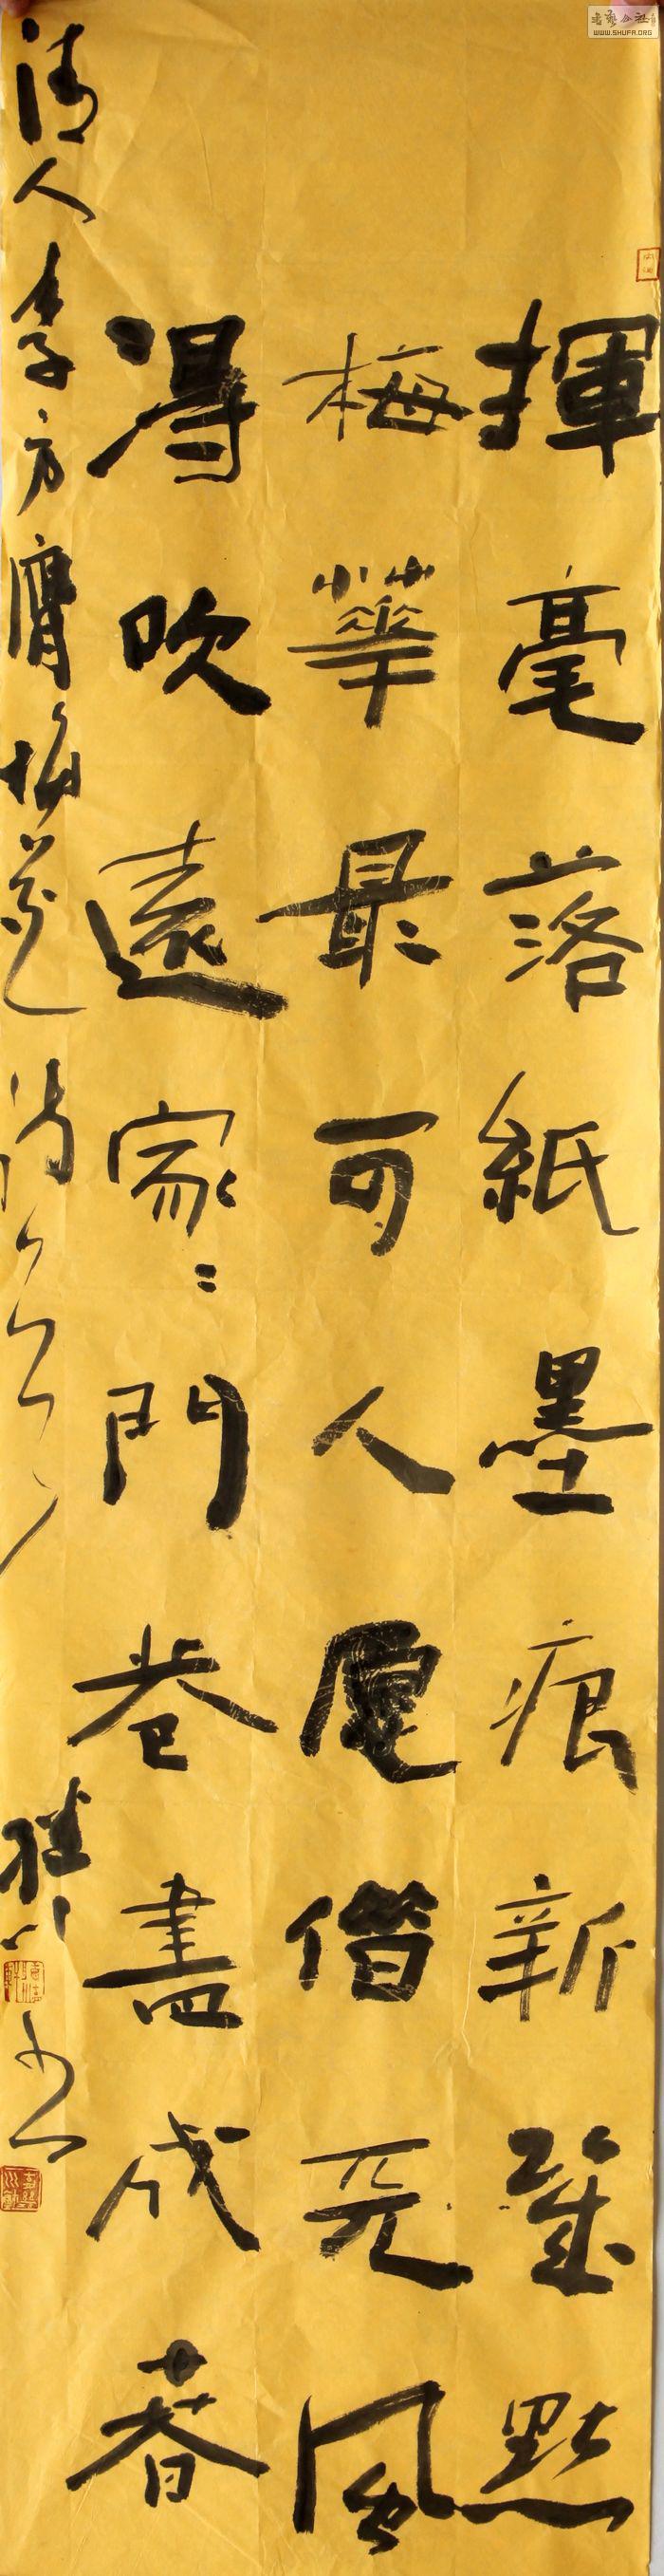 書藝公社
WWW.SHUFA.ORG
揮毫落紙墨痕新幾點
梅華最可人愿借天風
得吹遠家〻門巷盡成春
清人李方膺梅花詩